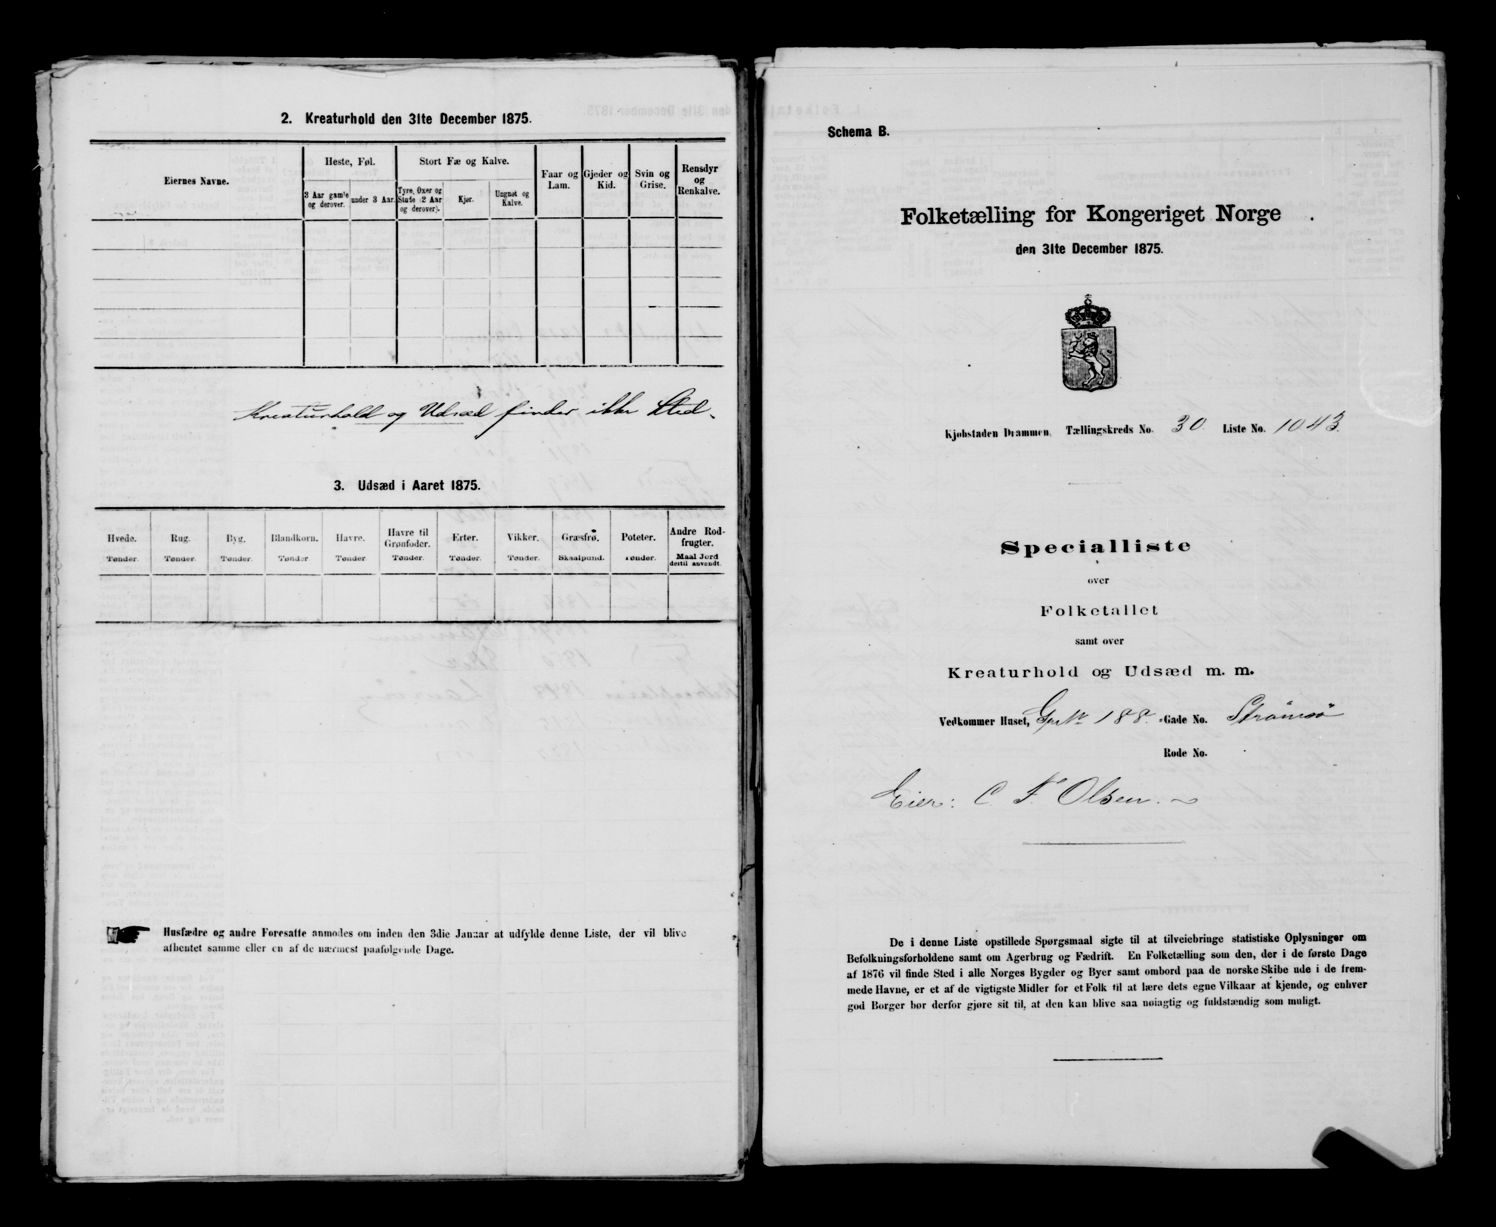 2. Kreaturhold den 31te December 1875.
Eiernes Navne.
Heste, Føl.
Stort Fæ og Kalve.
Faar og Lam.
Gjeder og Kid.
Svin og Grise.
Rensdyr og Renkalve.
3 Aar gamle og derover.
under 3 Aar.
Tyre, Oxer og Stude (2 Aar og derover).
Kjør.
Ungnøt og Kalve.
Kreaturhold og Udsæd finder ikke Sted.
3. Udsæd i Aaret 1875.
Hvede. Rug. Byg. Blandkorn. Havre. Havre til Grønfoder. Erter. Vikker. Græsfrø. Poteter. Andre Rodfrugter.
Tønder. Tønder. Tønder. Tønder Tønder. Tønder. Tønder. Tønder. Skaalpund. Tønder. Maal Jord dertil anvendt.
Husfædre og andre Foresatte anmodes om inden den 3die Januar at udfylde denne Liste, der vil blive
afhentet samme eller en af de nærmest paafølgende Dage.
Schema B.
Folketælling for Kongeriget Norge
den 31te December 1875.
Kjøbstaden Drammen. Tællingskreds No. 30 Liste No. 1043.
Specialliste
over
Folketallet
samt over
Kreaturhold og Udsæd m. m.
Vedkommer Huset, 188. Gade No. Strømsö
Rode No.
Eier: C F. Olsen.
De i denne Liste opstillede Spørgsmaal sigte til at tilveiebringe statistiske Oplysninger om
Befolkningsforholdene samt om Agerbrug og Fædrift. En Folketælling som den, der i de første Dage
af 1876 vil finde Sted i alle Norges Bygder og Byer samt ombord paa de norske Skibe ude i de frem-
mede Havne, er et af de vigtigste Midler for et Folk til at lære dets egne Vilkaar at kjende, og enhver
god Borger bør derfor gjøre sit til, at den kan blive saa nøiagtig og fuldstændig som muligt.